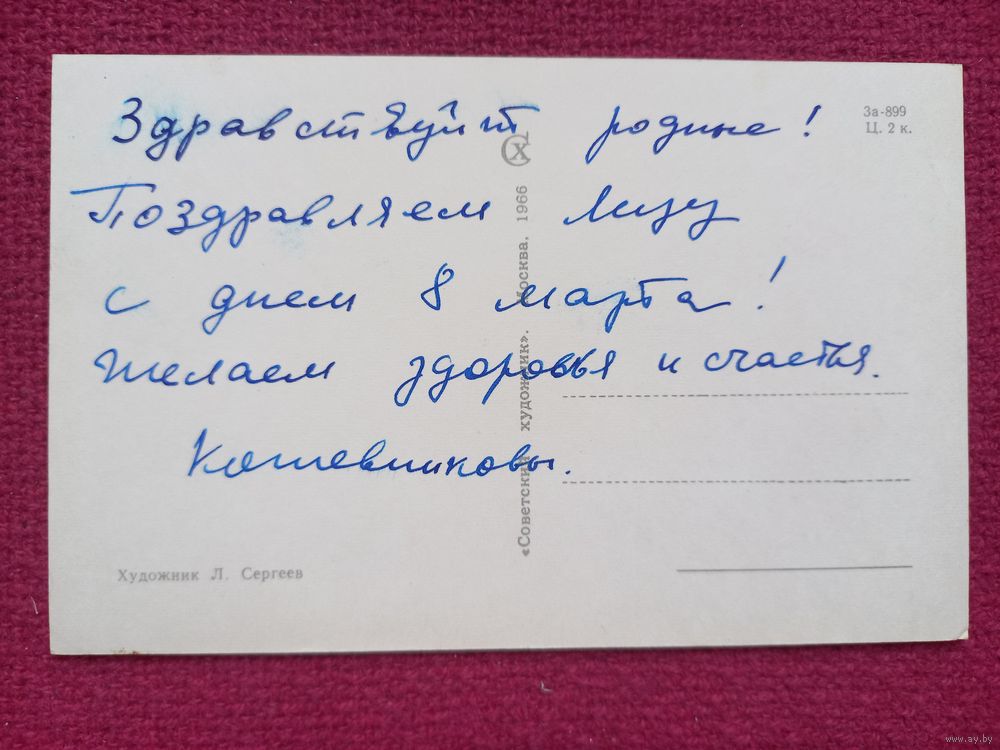 Здравствуйт родные!
Поздравляем Лизу
с днем 8 марта!
Желаем здоровья и счастья.
Кошевниковы.
За-899
Ц. 2 к.
«Советский художник». Москва. 1966
Художник Л. Сергеев
www.ay.by